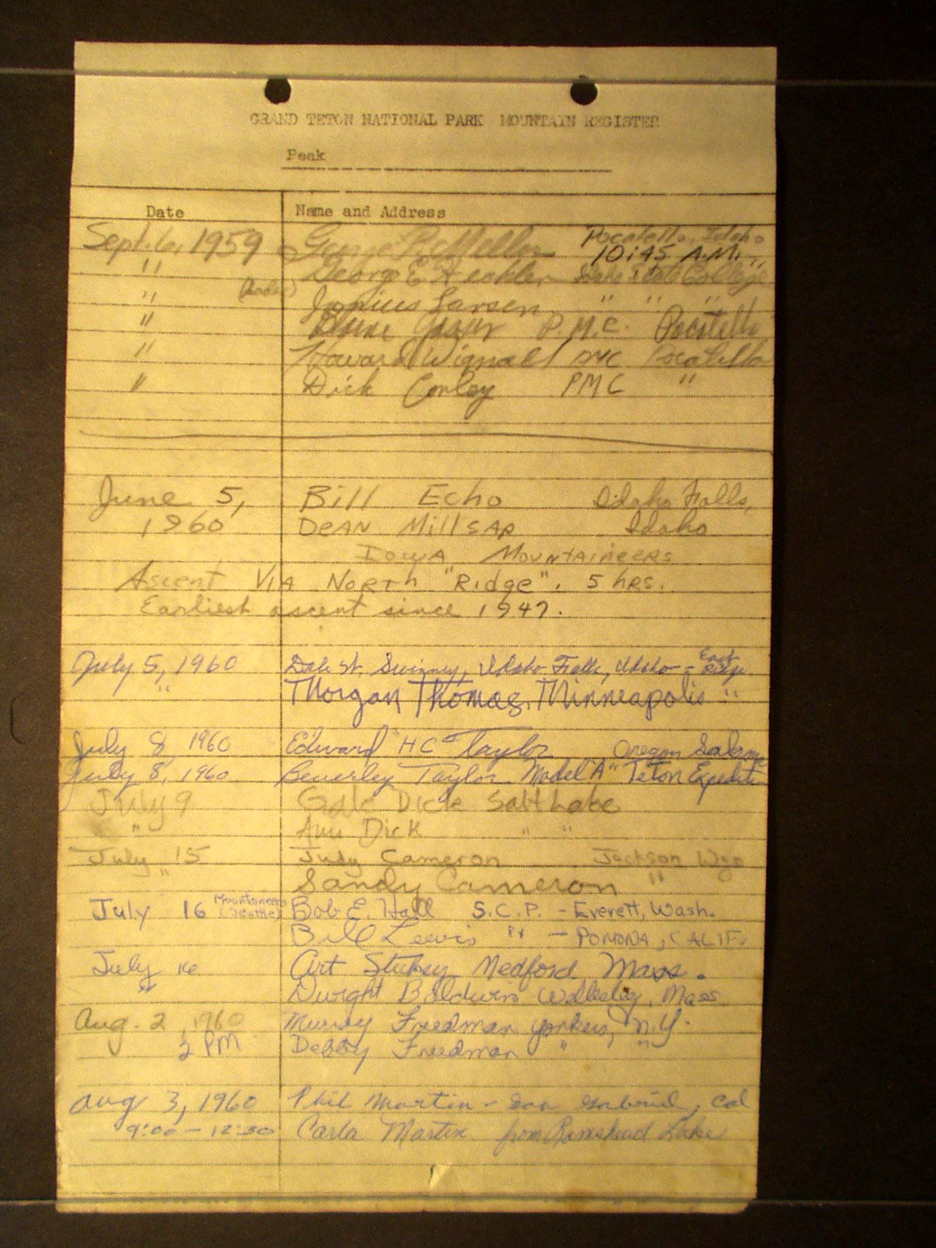 GRAND TETON NATIONAL PARK MOUNTAIN REGISTER
Peak
Date Name and Address
Sept. 6, 1959 George Pocatello, Idaho
10:45 A.M.
" George E. State College
" Junius Larsen " " "
" P.M.C. Pocatello
" Howard Wignall PMC Pocatello
" Dick Conley PMC "
June 5, Bill Echo Idaho Falls,
1960 DEAN MILLSAP Idaho
IOWA MOUNTAINEERS
Ascent VIA NORTH "Ridge". 5 HRS.
Earliest ascent since 1947.
July 5, 1960 Idaho Falls, Idaho - East Ridge
" Morgan Thomas, Minneapolis "
July 8 1960 Edward "HC" Taylor Oregon
July 8, 1960 Beverley Taylor Model "A" Teton
July 9 Dick Salt Lake
" Ann Dick " "
July 15 Judy Cameron Jackson Wyo
" Sandy Cameron "
July 16 Mountaineers (Seattle) Bob E. Hall S.C.P. - Everett, Wash.
Bill Lewis " - POMONA, CALIF.
July 16 Art Medford Mass.
" Dwight Baldwin Wellesley, Mass
Aug. 2, 1960 Murray Freedman Yonkers, N.Y.
2 PM Debby Freedman " "
Aug 3, 1960 Phil Martin - San Gabriel, Cal
9:00 - 12:30 Carla Martin from Ramshead Lake